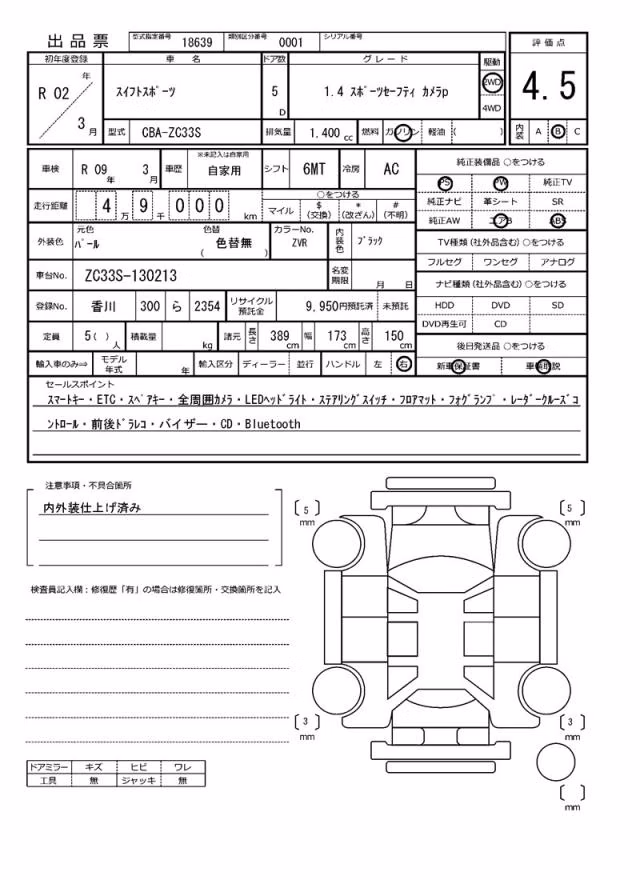 出品票 型式指定番号 18639 類別区分番号 0001 シリアル番号
評価点
4.5
初年度登録 車名 ドア数 グレード 駆動
R 02 年 3 月 スイフトスポーツ 5 D 1.4 スポーツセーフティ カメラp 2WD 4WD
型式 CBA-ZC33S 排気量 1,400 cc 燃料 ガソリン 軽油 ( )
内装 A B C
車検 R 09 年 3 月 車歴 ※未記入は自家用 自家用 シフト 6MT 冷房 AC
走行距離 4 万 9 千 0 0 0 km ○をつける
マイル $ (交換) * (改ざん) # (不明)
外装色 元色 パール 色替 ( 色替無 ) カラーNo. ZVR 内装色 ブラック
車台No. ZC33S-130213 名変期限 月 日
登録No. 香川 300 ら 2354 リサイクル預託金 9,950円預託済 未預託
定員 5( ) 人 積載量 kg 諸元 長さ 389 cm 幅 173 cm 高さ 150 cm
輸入車のみ⇒ モデル年式 年 輸入区分 ディーラー 並行 ハンドル 左 右
純正装備品 ○をつける
PS PW 純正TV
純正ナビ 革シート SR
純正AW エアB ABS
TV種類 (社外品含む) ○をつける
フルセグ ワンセグ アナログ
ナビ種類 (社外品含む) ○をつける
HDD DVD SD
DVD再生可 CD
後日発送品 ○をつける
新車保証書 車輌取説
セールスポイント
スマートキー・ETC・スペアキー・全周囲カメラ・LEDヘッドライト・ステアリングスイッチ・フロアマット・フォグランプ・レーダークルーズコ
ントロール・前後ドラレコ・バイザー・CD・Bluetooth
注意事項・不具合箇所
内外装仕上げ済み
検査員記入欄：修復歴「有」の場合は修復箇所・交換箇所を記入
[ 5 ] mm
[ 5 ] mm
[ 3 ] mm
[ 3 ] mm
[ ] mm
ドアミラー キズ ヒビ ワレ
工具 無 ジャッキ 無